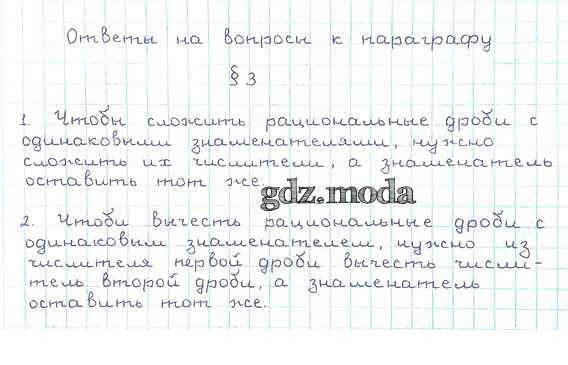 Ответы на вопросы к параграфу
§ 3
1. Чтобы сложить рациональные дроби с
одинаковыми знаменателями, нужно
сложить их числители, а знаменатель
оставить тот же.
gdz.moda
2. Чтоби вычесть рациональные дроби с
одинаковым знаменателем, нужно из
числителя первой дроби вычесть числи-
тель второй дроби, а знаменатель
оставить тот же.